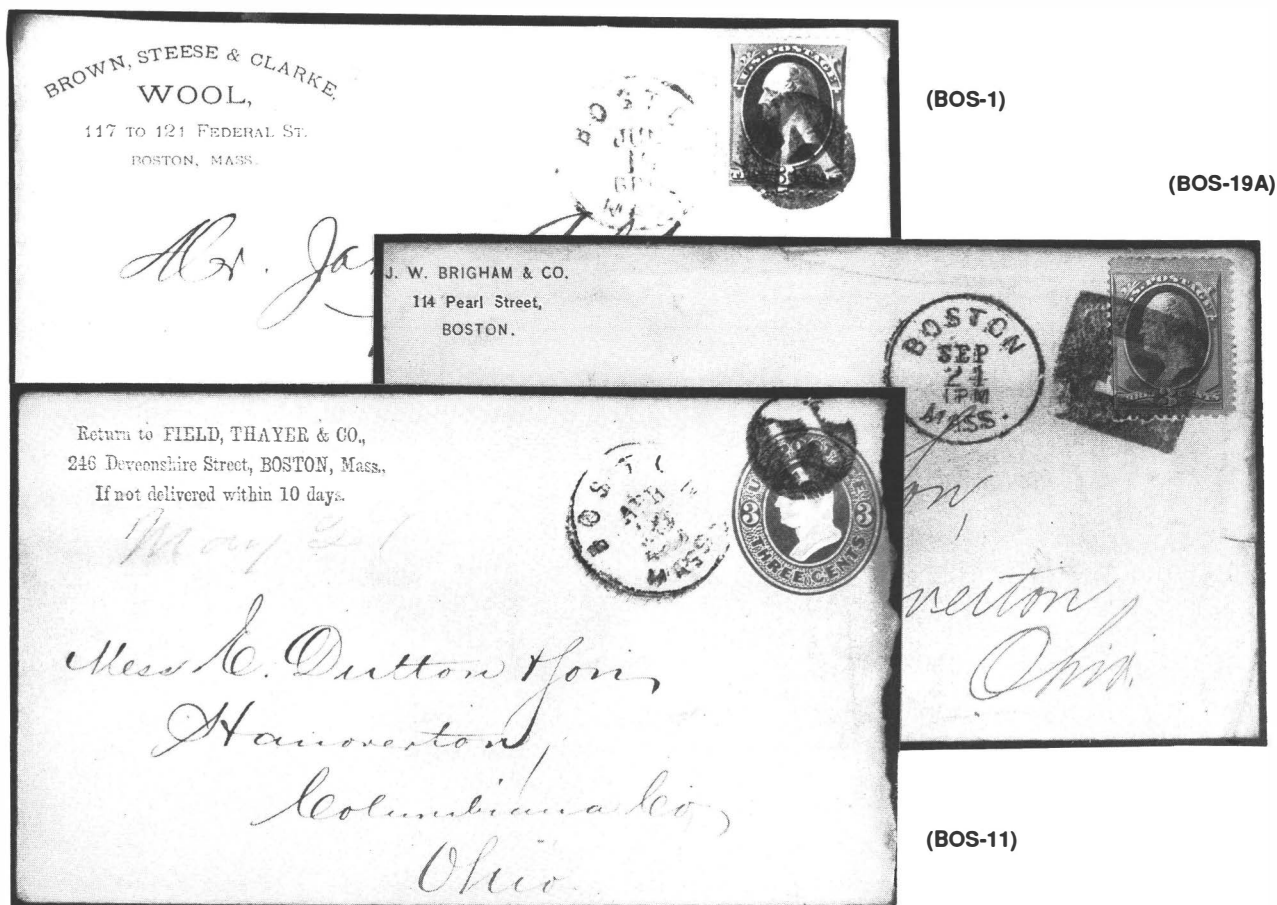 BROWN, STEESE & CLARKE.
WOOL,
117 TO 121 FEDERAL ST.
BOSTON, MASS.
BOST
JUL
U.S. POSTAGE
(BOS-1)
(BOS-19A)
Mr. Ja
J. W. BRIGHAM & CO.
114 Pearl Street,
BOSTON.
BOSTON
SEP
24
1PM
MASS.
U.S. POSTAGE
on,
verton
Ohio.
Return to FIELD, THAYER & CO.,
246 Deveonshire Street, BOSTON, Mass.,
If not delivered within 10 days.
May 21
BOST
MASS
U
E
3 3
THREE CENTS
Mess E. Dutton & Son,
Hanoverton,
Columbiana Co,
Ohio.
(BOS-11)